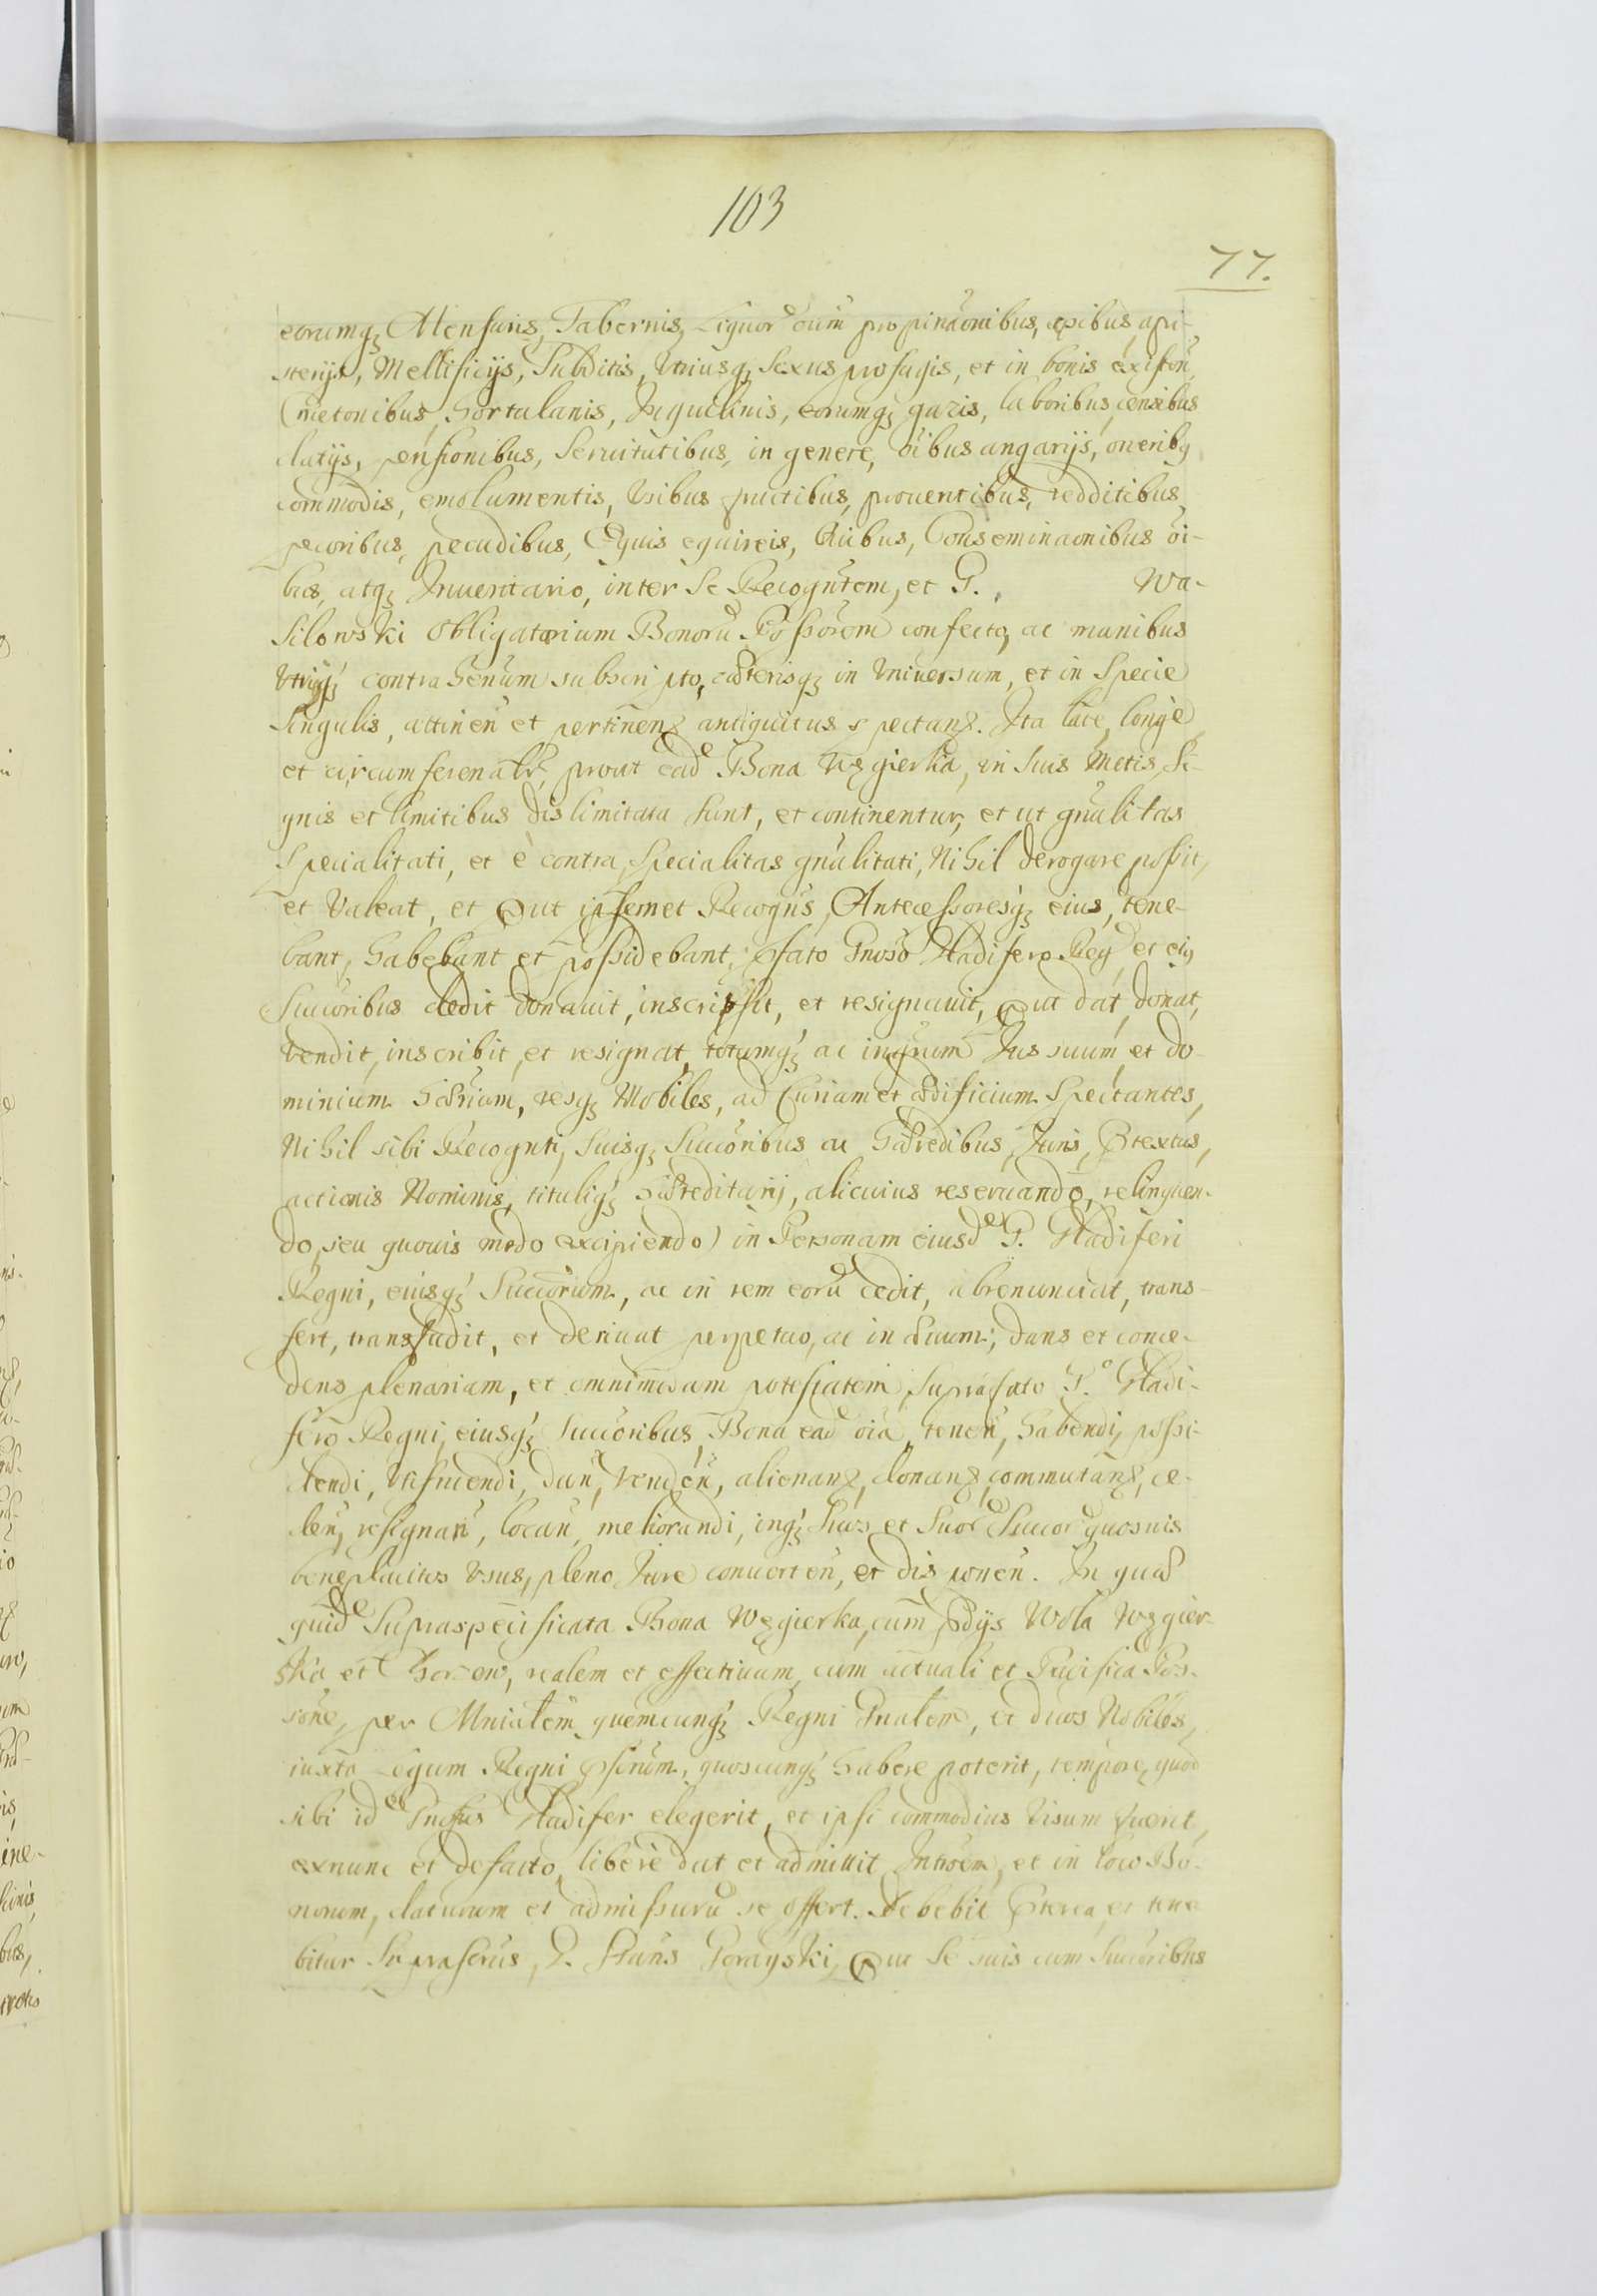 103
77.
eorumq₃ Mensuris, Tabernis, Liquor cum propina͠onibus, apibus, api-
sterijs, Mellificijs, Subditis, Vtriusq₃ Sexus profugis, et in bonis existen͠,
Cmetonibus, Hortulanis, Inquilinis, eorumq₃ gazis, laboribus, censibus
datijs, pensionibus, Seruitutibus, in genere, o͠ibus angarijs, onerib9
commodis, emolumentis, Vsibus fructibus, prouentibus, redditibus,
pecoribus, pecudibus, Equis equireis, Conseminaonibus o͠i-
bus, atq₃ Inuentario, inter Se Recogn͠tem, et G. Wa-
silowski Obligatorium Bonoru Possorem confecto, ac manibus
Vtriq₃ contrahen͠um subscripto, cæterisq₃ in Vniuersum, et in Specie
Singulis, attinen͠ et pertinen͠ antiquitus spectan͠. Ita late, longe
et circumferen͠alr, prout ead Bona Węgierka, in Suis Metis, Si-
gnis et limitibus dislimitata Sunt, et continentur, et ut gn͠alitas
Specialitati, et è contra, Specialitas gn͠alitati, Nihil derogare possit,
et Valeat, et put ipsemet Recogn͠s, Antecessoresq₃ eius, tene-
bant, habebant et possidebant, pfato Gnoso Gladifero Reg et ei9
Succoribus dedit donauit, inscripsit, et resignauit, put dat, donat,
vendit, inscribit, et resignat, totumq₃ ac ingrum Jus suum, et do-
minium hærium, resq₃ Mobiles, ad Curiam et ædificium Spectantes,
Nihil sibi Recogn͠ti, Suisq₃ Succoribus ac Hæredibus, Juris, Ptextus,
actionis Nominis, tituliq₃ hæreditarij, alicuius reseruando, relinquen-
do, seu quouis modo excipiendo) in Personam eiusd G. Gladiferi
Regni, eiusq₃ Succorum, ac in rem eoru cedit, abrenunciat, trans-
fert, transfudit, et deriuat perpetuo, ac in æuum; dans et conce-
dens plenariam, et omnimodam potestatem Suprafato G.o Gladi-
fero Regni, eiusq₃ Succoribus, Bona ead o͠ia, tenen͠, habendi, possi-
dendi, Vtifruendi, dan͠, venden͠, alienan͠, donan͠, commutan͠, ce-
den͠, resignan͠, locan͠, meliorandi, inq₃ Suos et Suor Succor quosuis
beneplacitos Vsus, pleno Jure conuerten͠, et disponen͠. In quæ
quid Supraspecificata Bona Węgierka, cum pdijs Wola Węgier-
ska et, realem et effectiuam, cum actuali et Pacifica Pos-
sone, per Mn͠ialem quemcunq₃ Regni Gn͠alem, et duos Nobiles,
iuxta Legum Regni pscrum, quoscunq₃ habere poterit, tempore, quod
sibi id Gnosus Gladifer elegerit, et ipsi commodius Visum fuerit,
exnunc et defacto, libere dat et admittit Introem, et in loco Bo-
norum, daturum et admissuru se offert. Debebit Pterea, et tene
bitur Suprascrus, G. Stan͠s Gorayski, put Se suis cum Succoribus